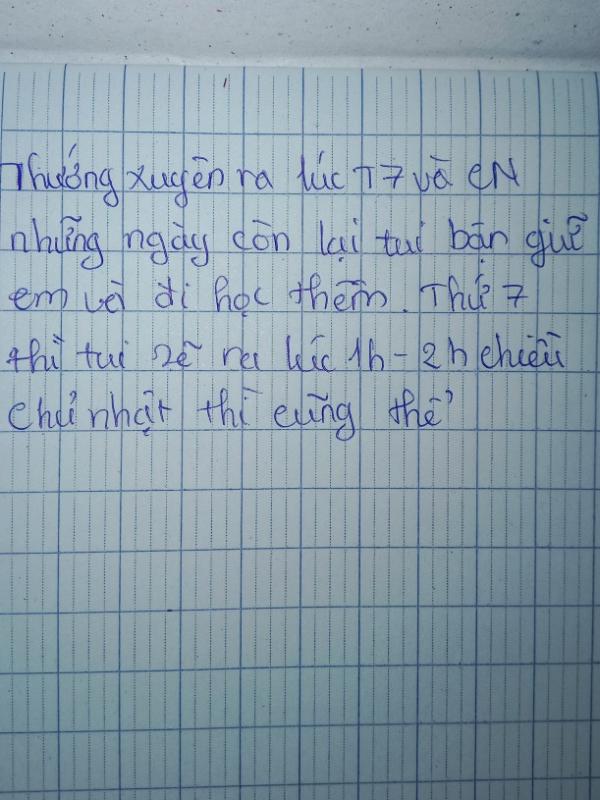 Thướng xuyên ra lúc T7 và CN
những ngày còn lại tui bận giữ
em và đi học thêm. Thứ 7
thì tui sẽ ra lúc 1h - 2h chiều
chủ nhật thì cũng thế